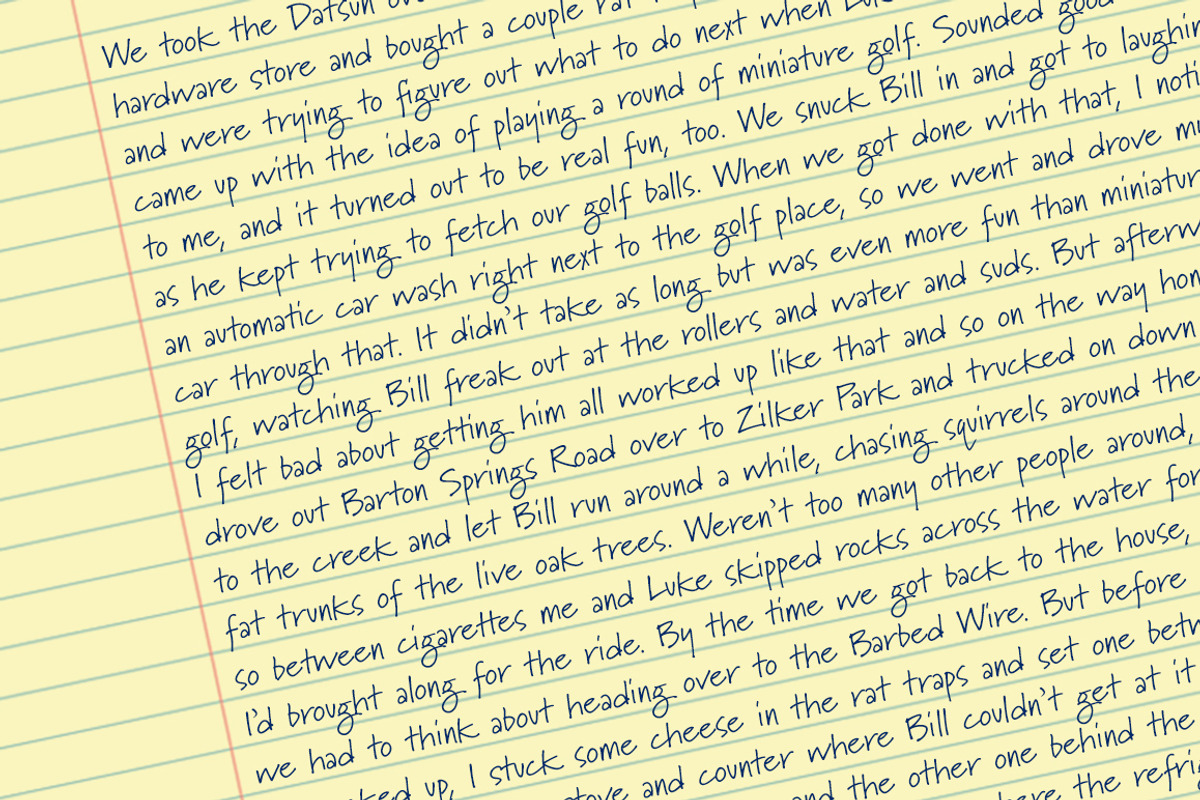 We took the Datsun
hardware store and bought a couple rat
and were trying to figure out what to do next when
came up with the idea of playing a round of miniature golf. Sounded good
to me, and it turned out to be real fun, too. We snuck Bill in and got to laughin
as he kept trying to fetch our golf balls. When we got done with that, I noti
an automatic car wash right next to the golf place, so we went and drove m
car through that. It didn't take as long but was even more fun than miniatur
golf, watching Bill freak out at the rollers and water and suds. But afterw
I felt bad about getting him all worked up like that and so on the way hom
drove out Barton Springs Road over to Zilker Park and trucked on down
to the creek and let Bill run around a while, chasing squirrels around the
fat trunks of the live oak trees. Weren't too many other people around,
so between cigarettes me and Luke skipped rocks across the water for
I'd brought along for the ride. By the time we got back to the house,
we had to think about heading over to the Barbed Wire. But before
ked up, I stuck some cheese in the rat traps and set one betw
tove and counter where Bill couldn't get at it
and the other one behind the
ere the refri